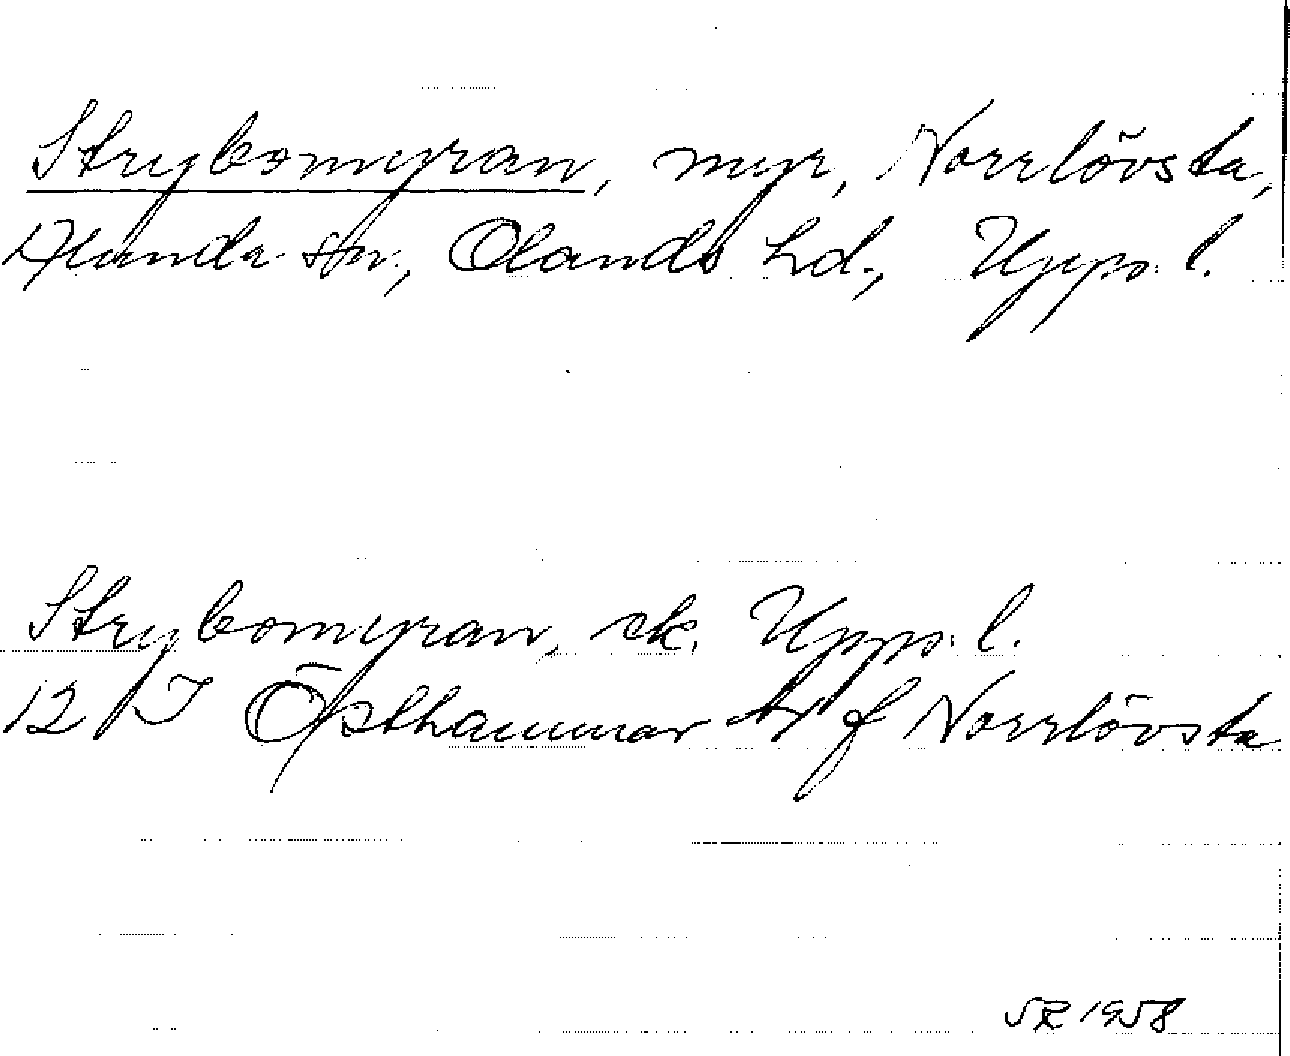 Strybomyran, myr, Norrlövsta,
Alunda sn., Olands hd., Upps. l.
Strybomyran, ek. Upps. l.
12 I Östhammar NV f Norrlövsta
SR 1958